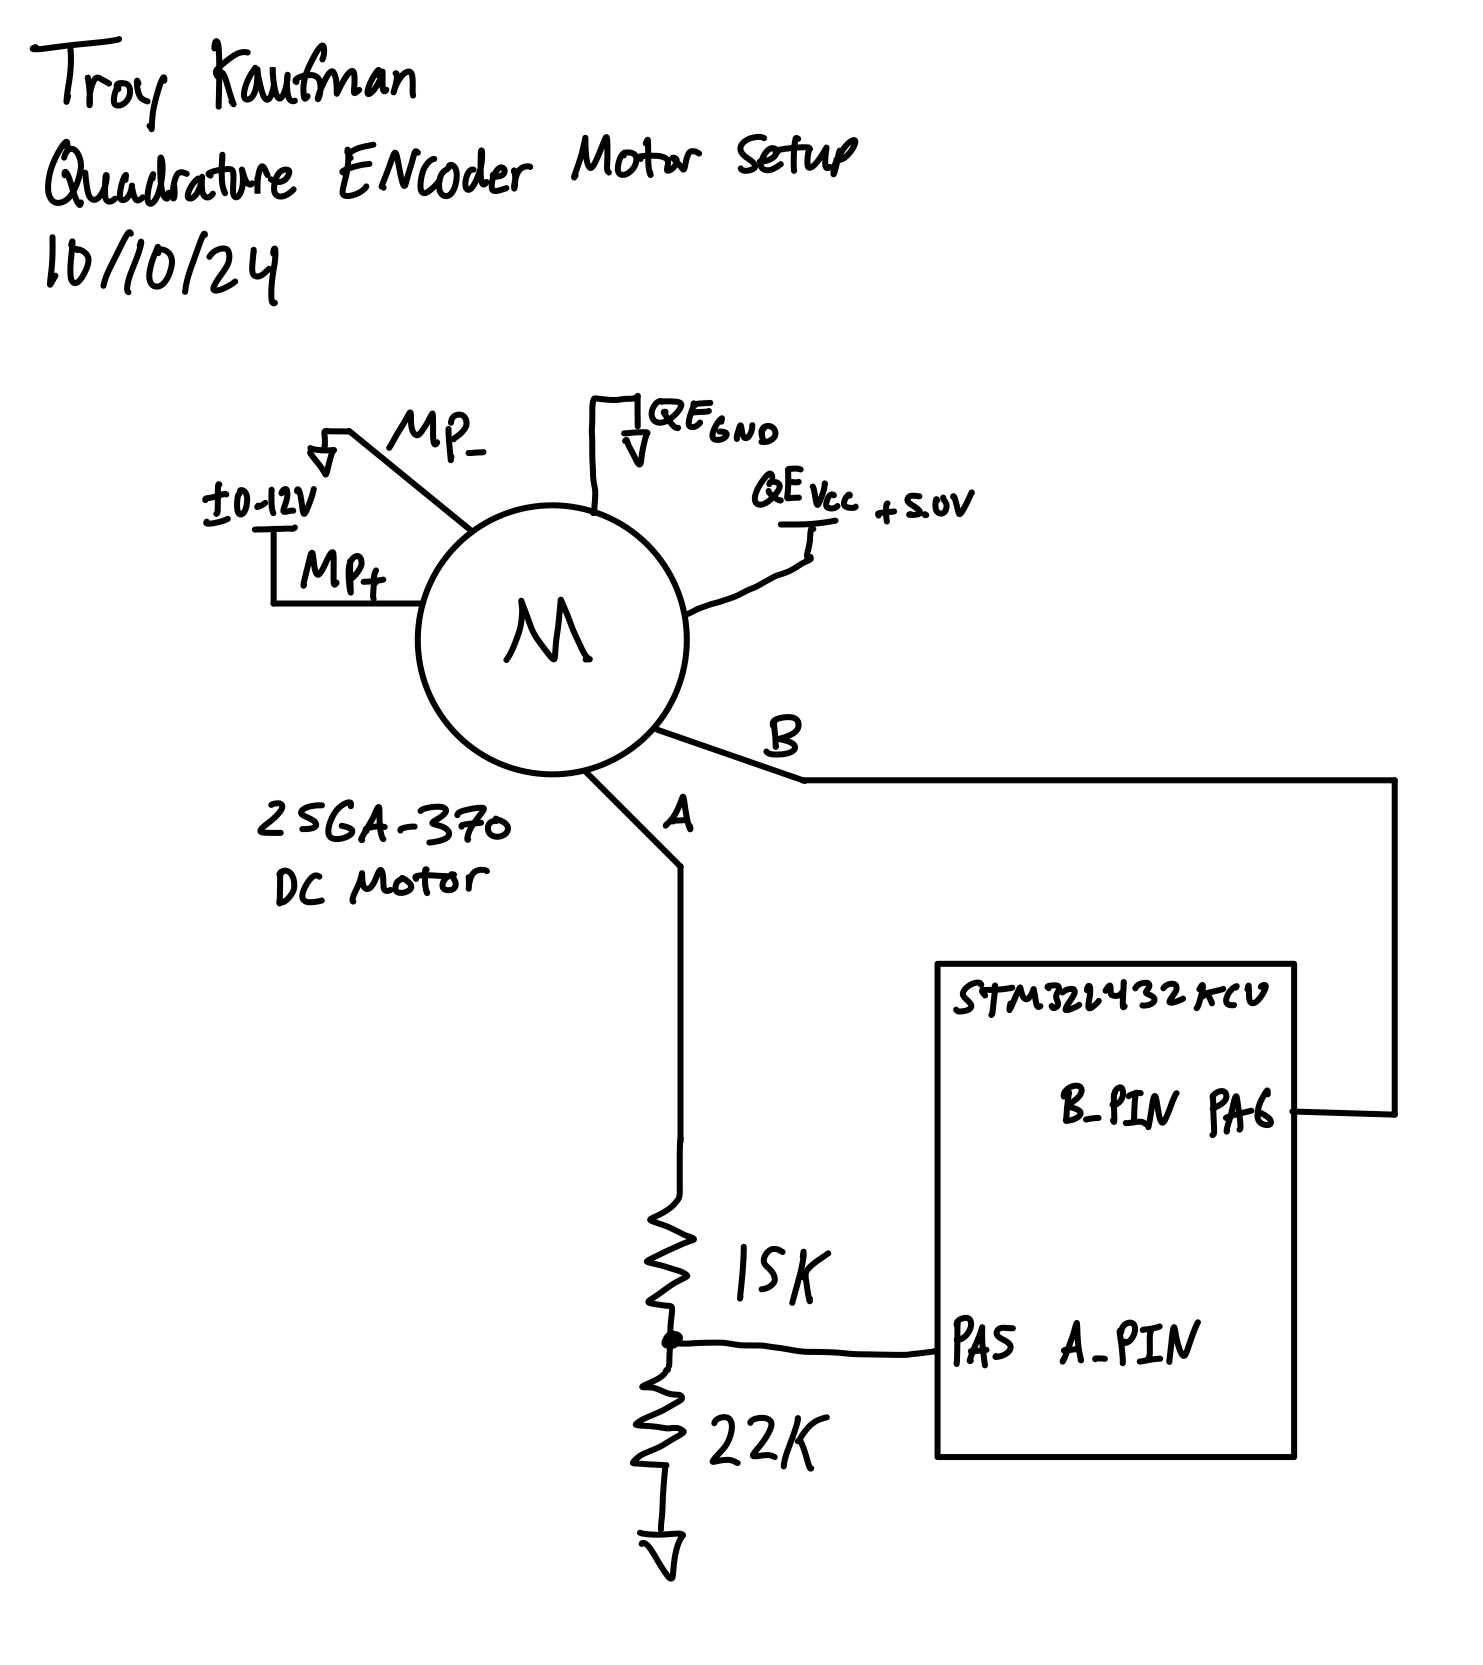 Troy Kaufman
Quadrature ENcoder Motor Setup
10/10/24
MP-
QE GND
±0-12V
QE VCC +5.0V
MP+
M
B
A
25GA-370
DC Motor
STM32L432KCU
B_PIN PA6
15K
PA5 A_PIN
22K